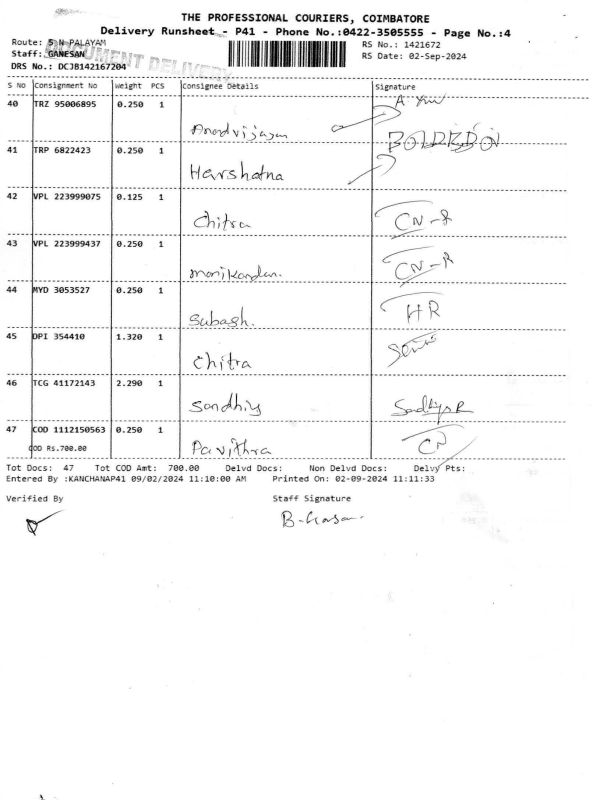 THE PROFESSIONAL COURIERS, COIMBATORE
Delivery Runsheet - P41 - Phone No.:0422-3505555 - Page No.:4
Route: S N PALAYAM
RS No.: 1421672
Staff: GANESAN
RS Date: 02-Sep-2024
DOCUMENT DELIVERY
DRS No.: DCJB142167204
S No Consignment No Weight PCS Consignee Details Signature
40 TRZ 95006895 0.250 1
Anandvijayan
41 TRP 6822423 0.250 1
Harshatna
42 VPL 223999075 0.125 1
Chitra CN-R
43 VPL 223999437 0.250 1
manikandan. CN-R
44 MYD 3053527 0.250 1
Subash. HR
45 DPI 354410 1.320 1
Chitra
46 TCG 41172143 2.290 1
Sandhiy
47 COD 1112150563 0.250 1
COD Rs.700.00 Pavithra CN
Tot Docs: 47 Tot COD Amt: 700.00 Delvd Docs: Non Delvd Docs: Delvy Pts:
Entered By :KANCHANAP41 09/02/2024 11:10:00 AM Printed On: 02-09-2024 11:11:33
Verified By Staff Signature